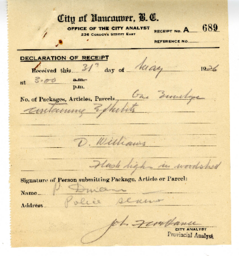 City of Vancouver, B.C.
OFFICE OF THE CITY ANALYST
RECEIPT NO. A 689
236 CORDOVA STREET EAST
REFERENCE NO.
DECLARATION OF RECEIPT
Received this 31st day of May 1926
at 3:00 a.m. p.m.
No. of Packages, Articles, Parcels One Envelope
containing 2 photos
D. Williams
Signature of Person submitting Package, Article or Parcel:
Name P
Address Police
John
CITY ANALYST
Provincial Analyst.